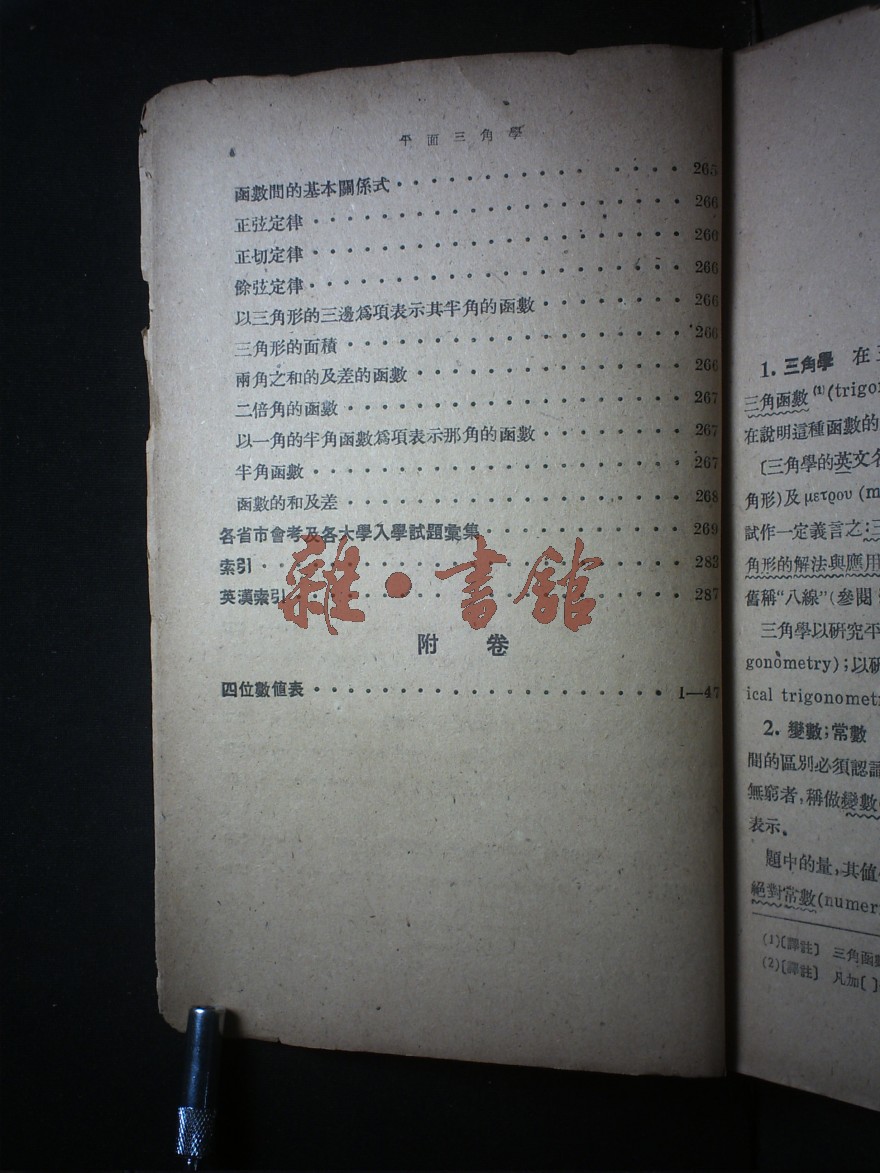 平面三角學
函數間的基本關係式 265
正弦定律 266
正切定律 266
餘弦定律 266
以三角形的三邊爲項表示其半角的函數 266
三角形的面積 266
兩角之和的及差的函數 266
二倍角的函數 267
以一角的半角函數爲項表示那角的函數 267
半角函數 267
函數的和及差 268
各省市會考及各大學入學試題彙集 269
索引 283
英漢索引 287
雜·書館
附卷
四位數値表 1—47
1. 三角學 在
三角函數(1)(trigo
在說明這種函數的
〔三角學的英文名
角形)及 μετρου (m
試作一定義言之:三
角形的解法與應用
舊稱“八線”(參閱
三角學以硏究平
gonometry);以硏
ical trigonomet
2. 變數;常數
間的區別必須認
無窮者,稱做變數
表示。
題中的量,其値
絕對常數(numer
(1)〔譯註〕 三角函數
(2)〔譯註〕 凡加〔 〕